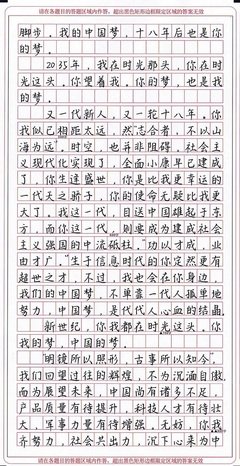 请在各题目的答题区域内作答，超出黑色矩形边框限定区域的答案无效
脚步，我的中国梦，十八年后也是你
的梦。
2035年，我在时光那头，你在时
光这头。你望着我，你的梦，也是我
的梦。
又一代新人，又一轮十八年。你
我似已相距太远，然“志合者，不以山
海为远”。时空，也并非阻碍，社会主
义现代化实现了，全面小康早已建成
了，你生逢盛世，你是比我更幸运的
一代天之骄子，你的使命无疑比我更
大了。我这一代，目送中国雄起于东
方，而你这一代，则要成为建成社会
主义强国的中流砥柱。“功以才成，业
由才广。”生于信息时代的你定然更有
超世之才，不过，我也会在你身边，
我们的中国梦，不单靠一代人孤单地
努力，中国梦，是代代人心血的结晶。
新世纪，你我都在时光这头。你
我的梦，中国的梦。
“明镜所以照形，古事所以知今”，
我们回望过往的辉煌，不为沉湎自傲
而为展望未来，中国尚有诸多不足，
产品质量有待提升，科技人才有待壮
大，军事力量有待增强，无妨，你我
齐努力，社会共出力，沉下心来为中
请在各题目的答题区域内作答，超出黑色矩形边框限定区域的答案无效